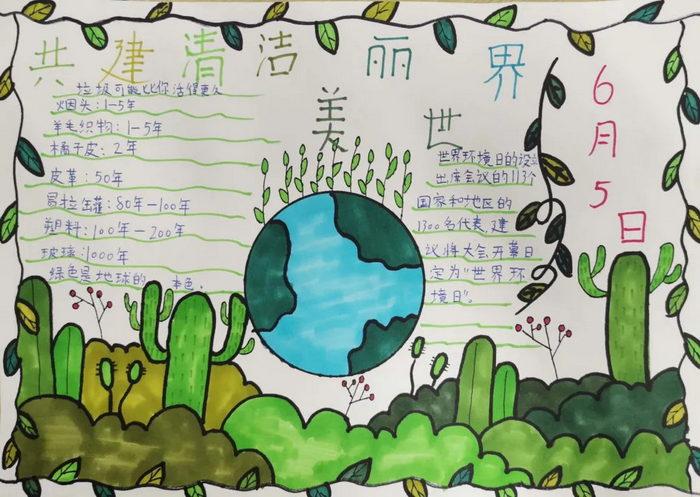 共建清洁美丽世界
垃圾可能比你活得更久
烟头:1-5年
羊毛织物:1-5年
橘子皮:2年
皮革:50年
易拉罐:80年-100年
塑料:100年-200年
玻璃:1000年
绿色是地球的 本色.
世界环境日的设立
出席会议的113个
国家和地区的
1300名代表,建
议将大会开幕日
定为"世界环
境日"。
6月5日